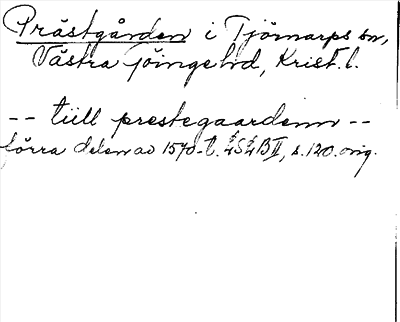 Prästgården i Tjörnarps sn,
Västra Göingehd, Krist. l.
-- tiill prestegaardenn --
förra delen av 1570-t. LSLB II, s. 120. orig.